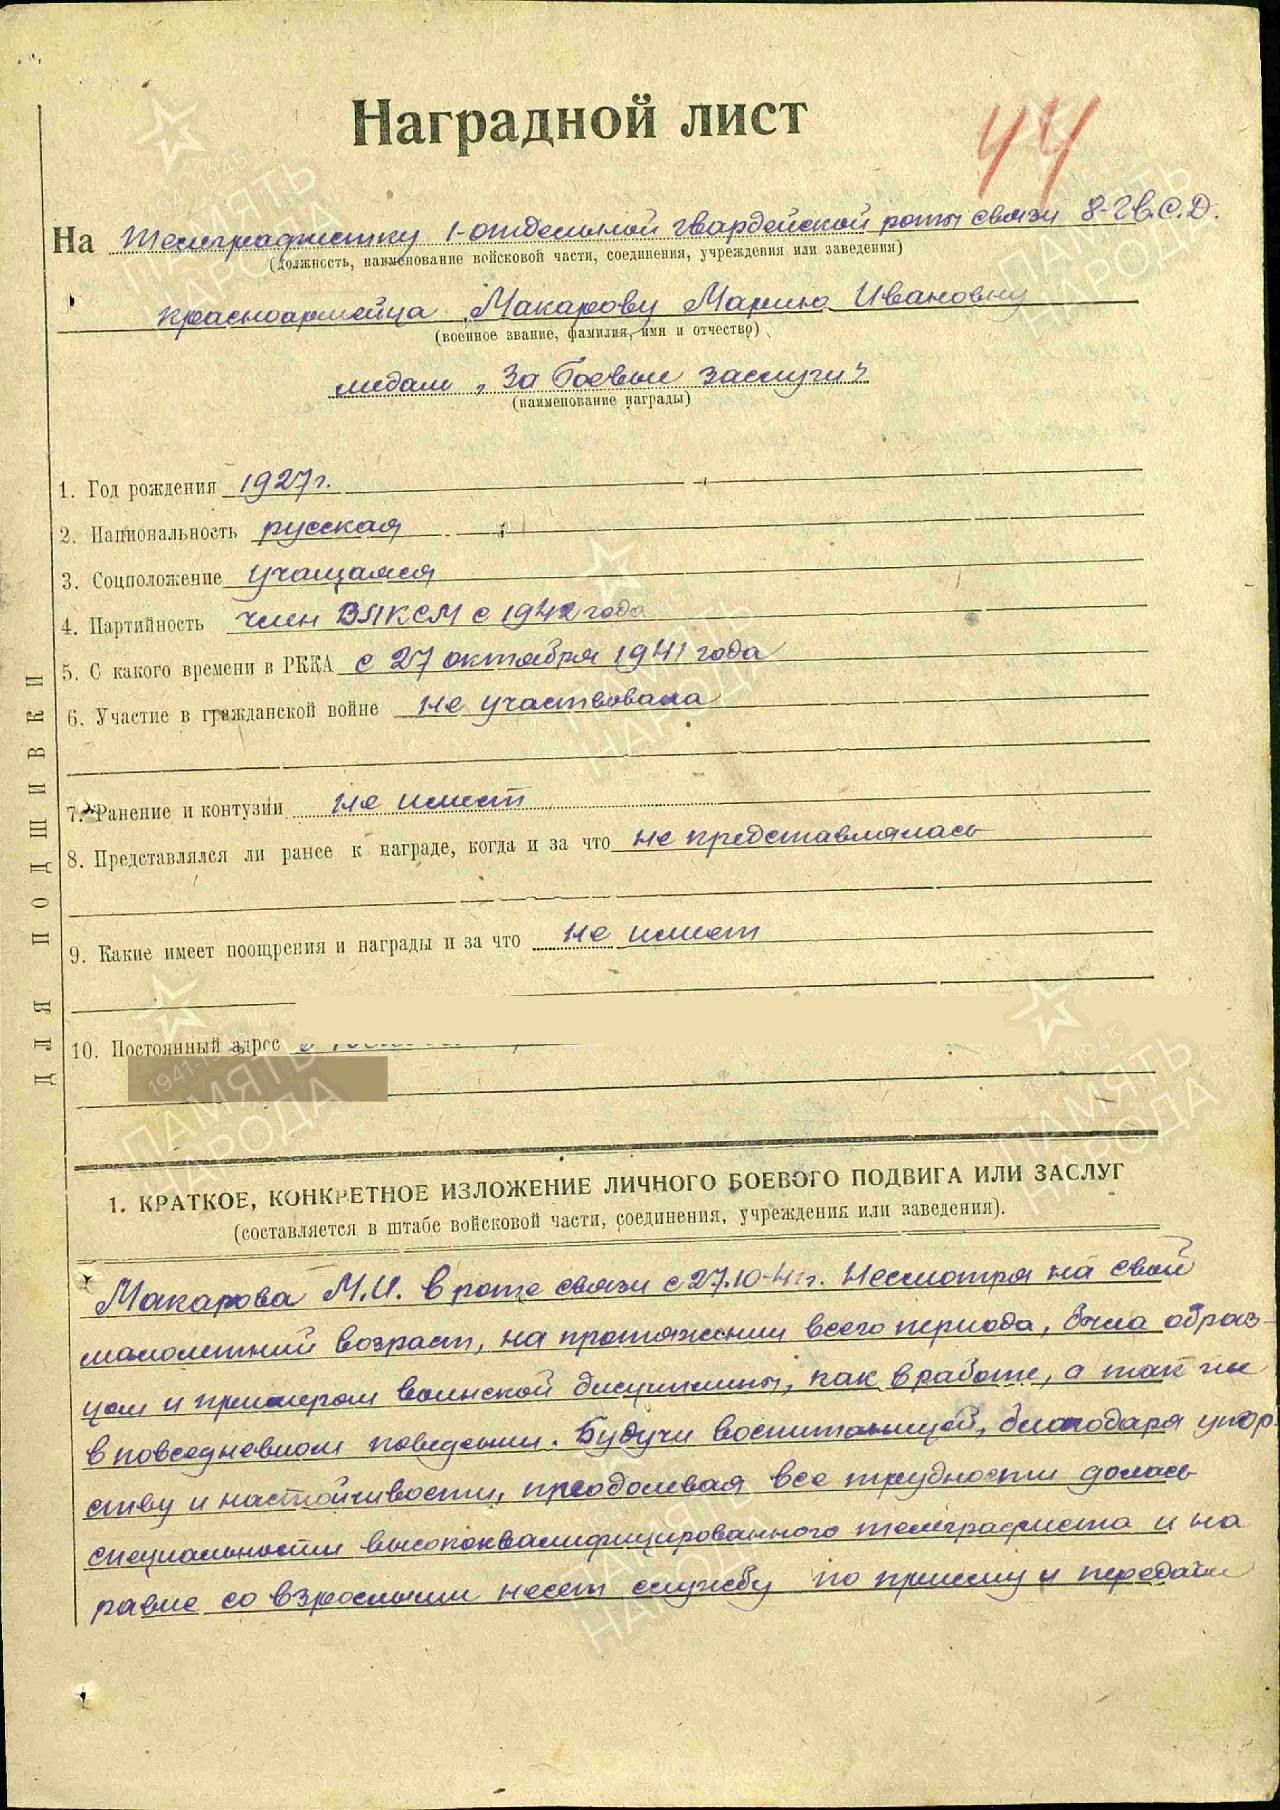 Наградной лист
44
На телеграфистку 1-отдельной гвардейской роты связи 8-Гв.С.Д.
(должность, наименование войсковой части, соединения, учреждения или заведения)
красноармейца Макарову Марию Ивановну
(военное звание, фамилия, имя и отчество)
медали „За боевые заслуги"
(наименование награды)
1. Год рождения 1927г.
2. Национальность русская
3. Соцположение учащаяся
4. Партийность член ВЛКСМ с 1942 года
5. С какого времени в РККА с 27 октября 1941 года
6. Участие в гражданской войне не участвовала
7. Ранение и контузии не имеет
8. Представлялся ли ранее к награде, когда и за что не представлялась
9. Какие имеет поощрения и награды и за что не имеет
10. Постоянный адрес
ДЛЯ ПОДШИВКИ
1. КРАТКОЕ, КОНКРЕТНОЕ ИЗЛОЖЕНИЕ ЛИЧНОГО БОЕВОГО ПОДВИГА ИЛИ ЗАСЛУГ
(составляется в штабе войсковой части, соединения, учреждения или заведения).
Макарова М.И. в роте связи с 27.10-41г. Несмотря на свой
малолетний возраст, на протяжении всего периода, была образ-
цом и примером воинской дисциплины, как в работе, а так же
в повседневном поведении. Будучи воспитанницей, благодаря упор-
ству и настойчивости, преодолевая все трудности
специальности высококвалифицированного телеграфиста и на
равне со взрослыми несет службу по приему и передачи
1941-1945
ПАМЯТЬ
НАРОДА